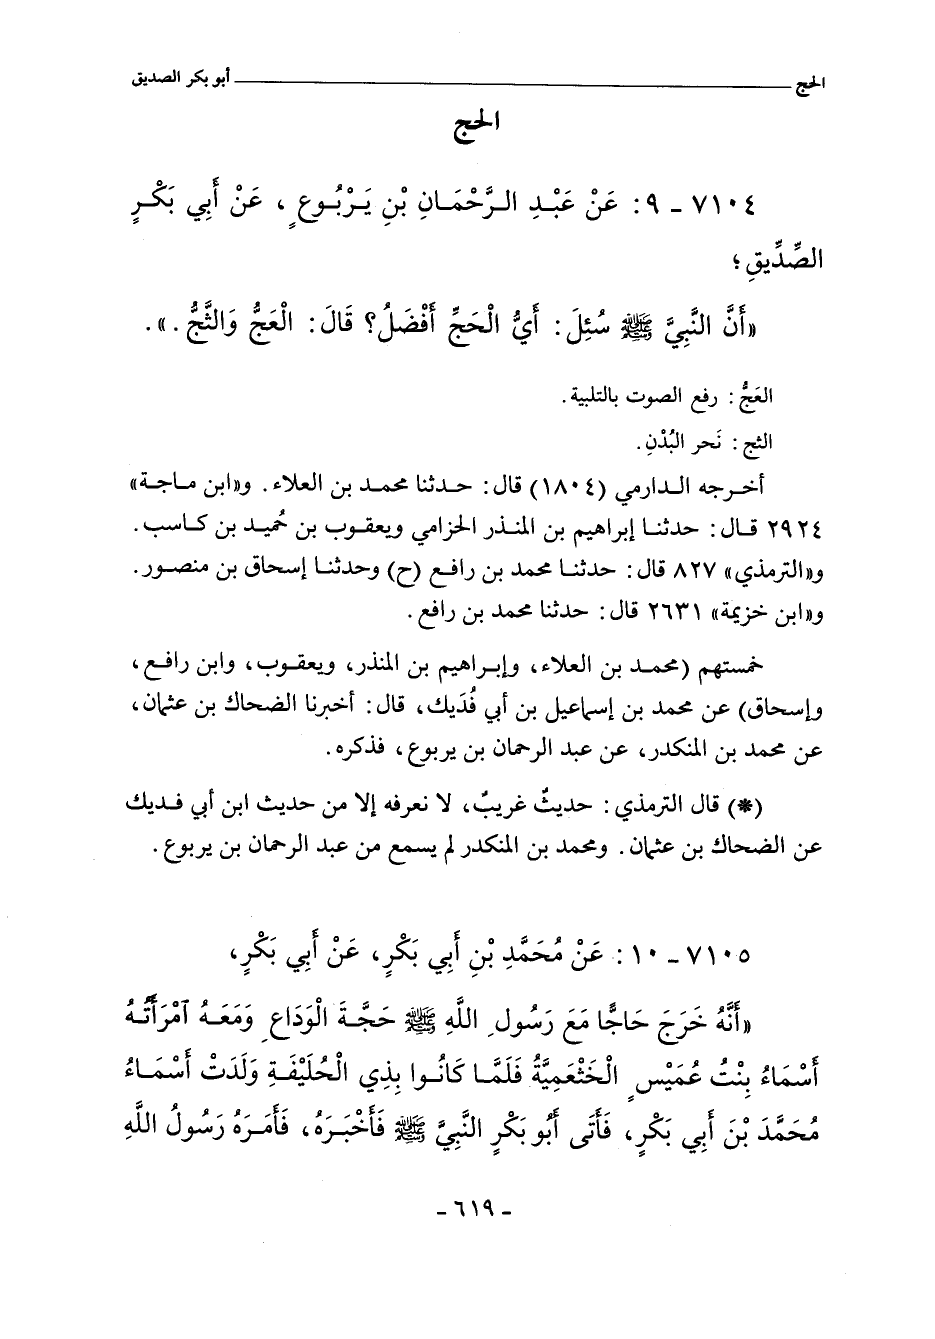 الحج ــــــ أبو بكر الصديق
الحج
٧١٠٤ - ٩: عَنْ عَبْدِ الرَّحْمَانِ بْنِ يَرْبُوعٍ، عَنْ أَبِي بَكْرٍ
الصِّدِّيقِ؛
«أَنَّ النَّبِيَّ ﷺ سُئِلَ: أَيُّ الْحَجِّ أَفْضَلُ؟ قَالَ: الْعَجُّ وَالثَّجُّ.».
العَجُّ: رفع الصوت بالتلبية.
الثج: نَحر البُدْنِ.
أخرجه الدارمي (١٨٠٤) قال: حدثنا محمد بن العلاء. و«ابن ماجة»
٢٩٢٤ قال: حدثنا إبراهيم بن المنذر الحزامي ويعقوب بن حُميد بن كاسب.
و«الترمذي» ٨٢٧ قال: حدثنا محمد بن رافع (ح) وحدثنا إسحاق بن منصور.
و«ابن خزيمة» ٢٦٣١ قال: حدثنا محمد بن رافع.
خمستهم (محمد بن العلاء، وإبراهيم بن المنذر، ويعقوب، وابن رافع،
وإسحاق) عن محمد بن إسماعيل بن أبي فُدَيك، قال: أخبرنا الضحاك بن عثمان،
عن محمد بن المنكدر، عن عبد الرحمان بن يربوع، فذكره.
(*) قال الترمذي: حديثٌ غريبٌ، لا نعرفه إلا من حديث ابن أبي فديك
عن الضحاك بن عثمان. ومحمد بن المنكدر لم يسمع من عبد الرحمان بن يربوع.
٧١٠٥ - ١٠: عَنْ مُحَمَّدِ بْنِ أَبِي بَكْرٍ، عَنْ أَبِي بَكْرٍ،
«أَنَّهُ خَرَجَ حَاجًّا مَعَ رَسُولِ اللَّهِ ﷺ حَجَّةَ الْوَدَاعِ وَمَعَهُ آمْرَأَتُهُ
أَسْمَاءُ بِنْتُ عُمَيْسٍ الْخَثْعَمِيَّةُ فَلَمَّا كَانُوا بِذِي الْحُلَيْفَةِ وَلَدَتْ أَسْمَاءُ
مُحَمَّدَ بْنَ أَبِي بَكْرٍ، فَأَتَى أَبُو بَكْرٍ النَّبِيَّ ﷺ فَأَخْبَرَهُ، فَأَمَرَهُ رَسُولُ اللَّهِ
- ٦١٩ -